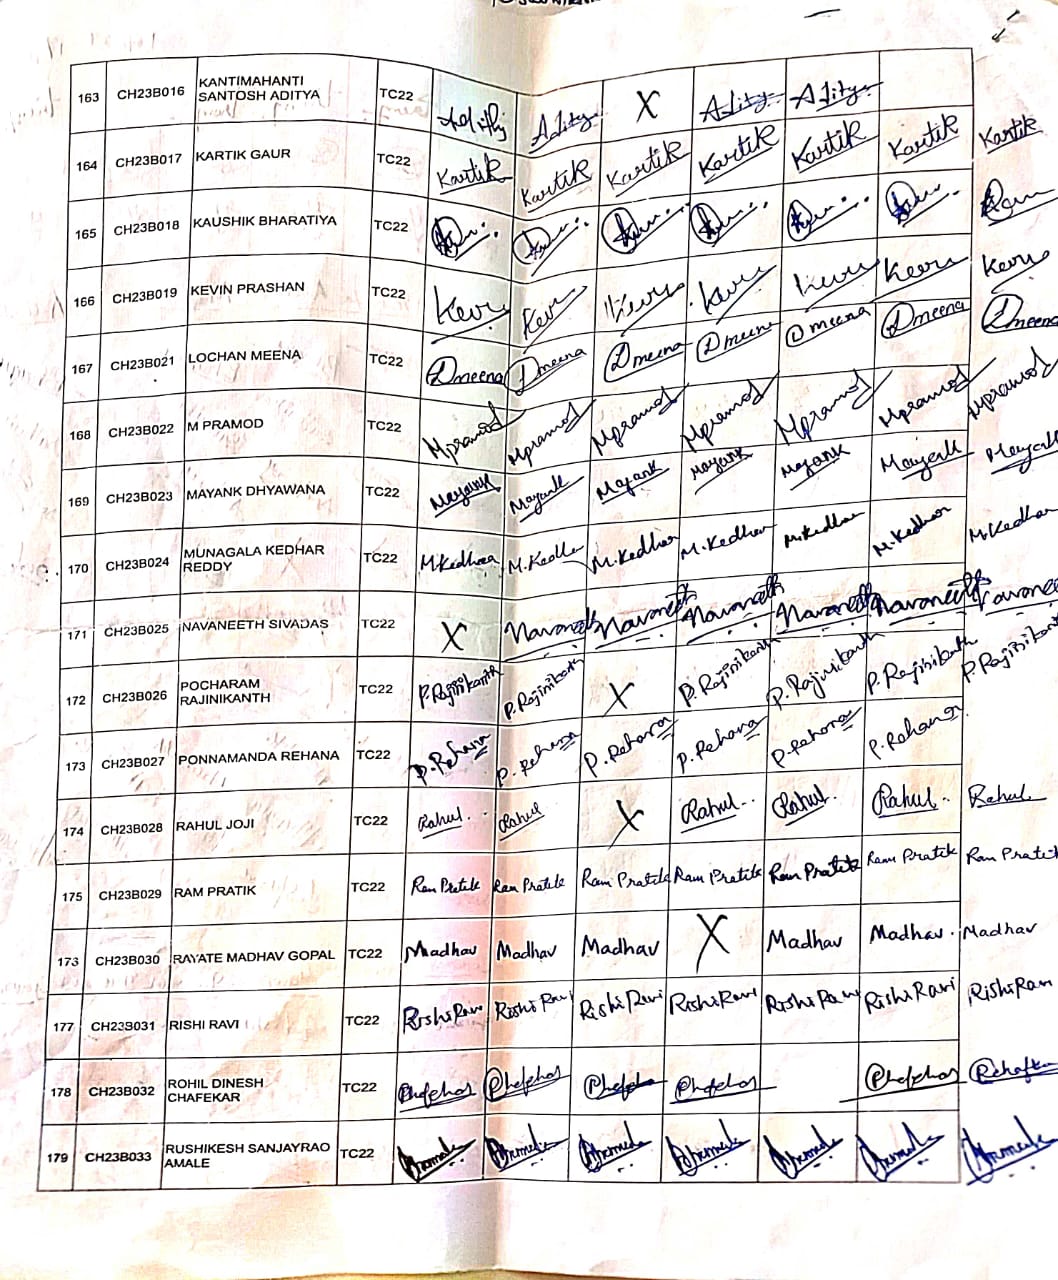 163 CH23B016 KANTIMAHANTI SANTOSH ADITYA TC22 Adithj Aditya X Aditya Aditya
164 CH23B017 KARTIK GAUR TC22 Kartik Kartik Kartik Kartik Kartik Kartik Kartik
165 CH23B018 KAUSHIK BHARATIYA TC22
166 CH23B019 KEVIN PRASHAN TC22 Kevin Kevin Kevin Kevin Kevin Kevin Kevin
167 CH23B021 LOCHAN MEENA TC22 Lmeena Lmeena Lmeena Lmeena Lmeena Lmeena Lmeena
168 CH23B022 M PRAMOD TC22 Mpramod Mpramod Mpramod Mpramod Mpramod Mpramod Mpramod
169 CH23B023 MAYANK DHYAWANA TC22 Mayank Mayank Mayank Mayank Mayank Mayank Mayank
170 CH23B024 MUNAGALA KEDHAR REDDY TC22 M.Kedhar M.Kedhar M.Kedhar M.Kedhar M.Kedhar M.Kedhar M.Kedhar
171 CH23B025 NAVANEETH SIVADAS TC22 X Navaneeth Navaneeth Navaneeth Navaneeth Navaneeth Navanee
172 CH23B026 POCHARAM RAJINIKANTH TC22 P.Rajinikanth P.Rajinikanth X P.Rajinikanth P.Rajinikanth P.Rajinikanth P.Rajinikant
173 CH23B027 PONNAMANDA REHANA TC22 P.Rehana P.Rehana P.Rehana P.Rehana P.Rehana P.Rehana
174 CH23B028 RAHUL JOJI TC22 Rahul. Rahul X Rahul.. Rahul. Rahul. Rahul
175 CH23B029 RAM PRATIK TC22 Ram Pratik Ram Pratik Ram Pratik Ram Pratik Ram Pratik Ram Pratik Ram Pratik
173 CH23B030 RAYATE MADHAV GOPAL TC22 Madhav Madhav Madhav X Madhav Madhav. Madhav
177 CH23B031 RISHI RAVI TC22 Rishi Ravi Rishi Ravi Rishi Ravi Rishi Ravi Rishi Ravi Rishi Ravi Rishi Ravi
178 CH23B032 ROHIL DINESH CHAFEKAR TC22
179 CH23B033 RUSHIKESH SANJAYRAO AMALE TC22